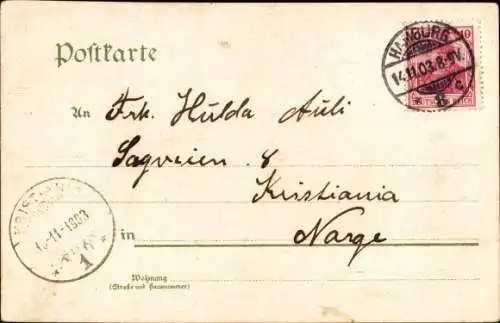 Postkarte
HAMBURG
14.11.03.8-9V.
* 8 c.
10
An Frk. Hulda Auli
Sagveien 8
Kristiania
in Norge
KRISTIANIA
-11-1903
1
Wohnung
(Straße und Hausnummer)